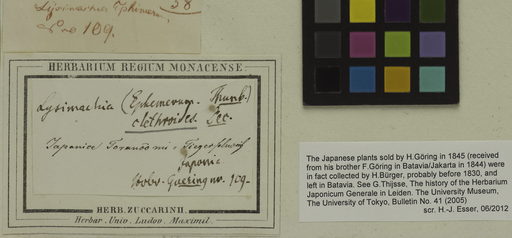 Lysimachia Ephemerum.
38
No 109.
HERBARIUM REGIUM MONACENSE.
Lysimachia (Ephemerum. Thunb.)
clethroides
Japonice Toranowo
japonic
Goering no. 109.
HERB. ZUCCARINII.
Herbar. Univ. Ludov. Maximil.
The Japanese plants sold by H.Göring in 1845 (received
from his brother F.Göring in Batavia/Jakarta in 1844) were
in fact collected by H.Bürger, probably before 1830, and
left in Batavia. See G.Thijsse, The history of the Herbarium
Japonicum Generale in Leiden. The University Museum,
The University of Tokyo, Bulletin No. 41 (2005)
scr. H.-J. Esser, 06/2012